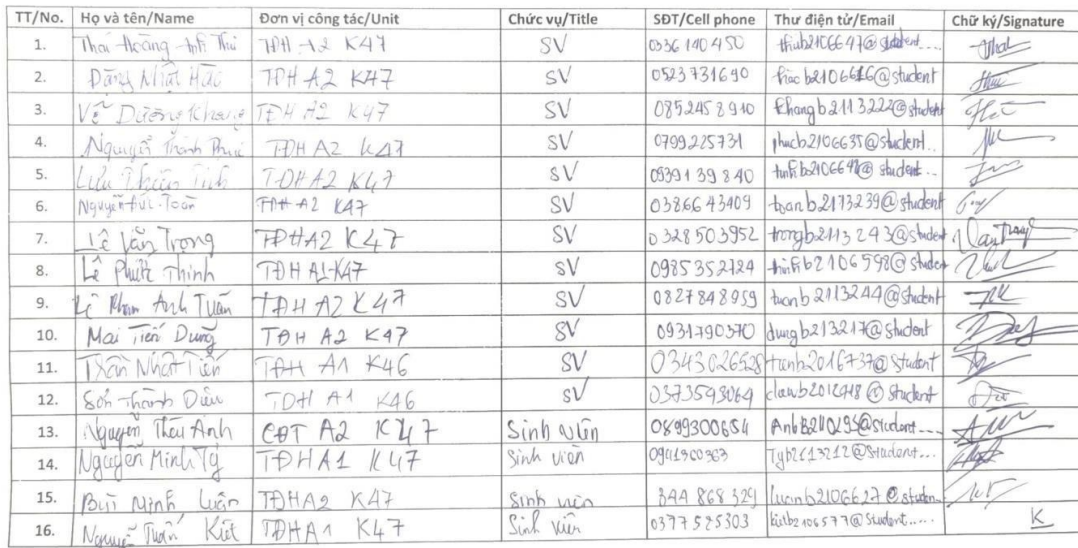 TT/No. Họ và tên/Name Đơn vị công tác/Unit Chức vụ/Title SĐT/Cell phone Thư điện tử/Email Chữ ký/Signature
1. Thái Hoàng Anh Thi TĐH A2 K47 SV 0336 140 450 thiub2106647@student....
2. Đặng Nhật Hào TĐH A2 K47 SV 0523731690 haob2106616@student
3. Võ Dương Khang TĐH A2 K47 SV 0852458910 khangb2113222@student
4. Nguyễn Thành Phúc TĐH A2 K47 SV 0799225731 phucb2106635@student..
5. Lưu Tính TĐH A2 K47 SV 0939139840 @student...
6. Nguyễn Đức Toàn TĐH A2 K47 SV 0386643409 toanb2113239@student
7. Lê Văn Trọng TĐHA2 K47 SV 0328503952 trongb2113243@student
8. Lê Phước Thịnh TĐH A1-K47 SV 0985352724 b2106598@student
9. Lê Phạm Anh Tuấn TĐH A2 K47 SV 0827848959 tuanb2113244@student
10. Mai Tiến Dũng TĐH A2 K47 SV 0931790370 dungb213217@student
11. Trần Nhật Tiến TĐH A1 K46 SV 0343026528 tienb2016737@student
12. Sơn Thành TĐH A1 K46 SV 0373593064 @student
13. Nguyễn Anh CĐT A2 K47 Sinh viên 0899300654 Anhb2110293@student....
14. Nguyễn Minh Tý TĐHA1 K47 Sinh viên 0941360363 Tyb2613212@student...
15. Bùi Minh Luân TĐHA2 K47 Sinh viên 344 868 329 luanb2106627@studen..
16. Nguyễn Tuấn Kiệt TĐHA1 K47 Sinh viên 0377525303 kietb2106577@student..... K